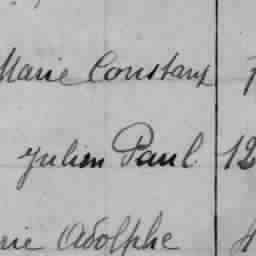 Marie Constant
Julien Paul 12
Adolphe